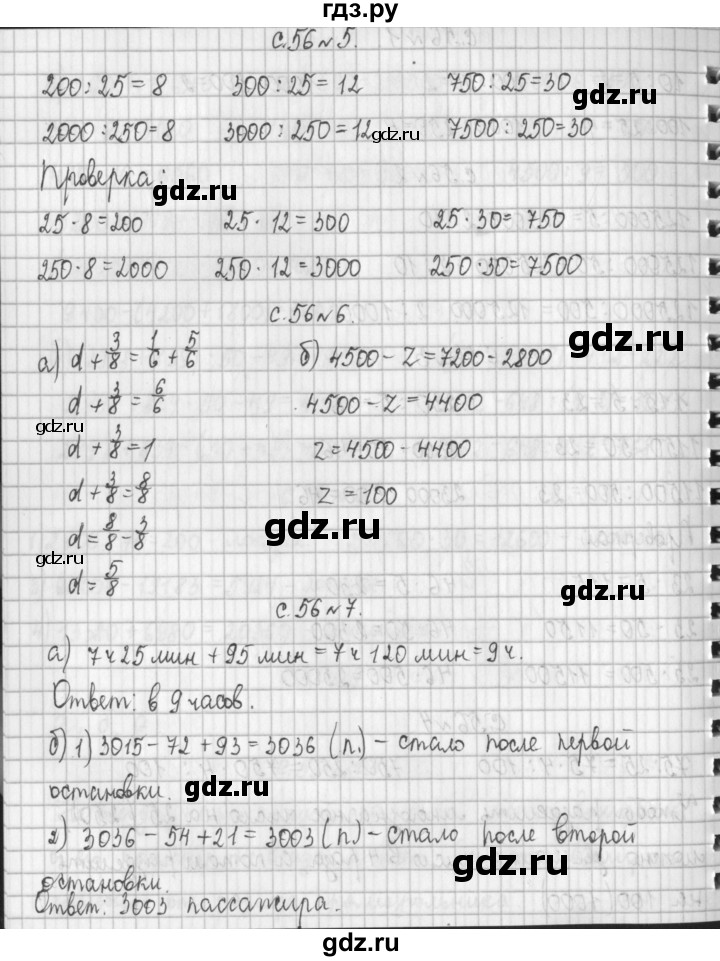 гдз.ру
с.56 №5.
200 : 25 = 8    300 : 25 = 12    750 : 25 = 30
gdz.ru
2000 : 250 = 8    3000 : 250 = 12    7500 : 250 = 30
gdz.ru gdz.ru
Проверка:
gdz.ru
25 · 8 = 200    25 · 12 = 300    25 · 30 = 750
250 · 8 = 2000    250 · 12 = 3000    250 · 30 = 7500
с.56 №6.
а) d + 3/8 = 1/6 + 5/6    б) 4500 - z = 7200 - 2800
gdz.ru
d + 3/8 = 6/6    4500 - z = 4400
gdz.ru
d + 3/8 = 1    z = 4500 - 4400
d + 3/8 = 8/8    z = 100
gdz.ru
d = 8/8 - 3/8
gdz.ru
d = 5/8
gdz.ru
с.56 №7.
а) 7ч 25 мин + 95 мин = 7ч 120 мин = 9ч.
Ответ: в 9 часов.
gdz.ru
б) 1) 3015 - 72 + 93 = 3036 (п.) - стало после первой
остановки.
gdz.ru
2) 3036 - 54 + 21 = 3003 (п) - стало после второй
gdz.ru
остановки.
Ответ: 3003 пассажира.
gdz.ru
gdz.ru